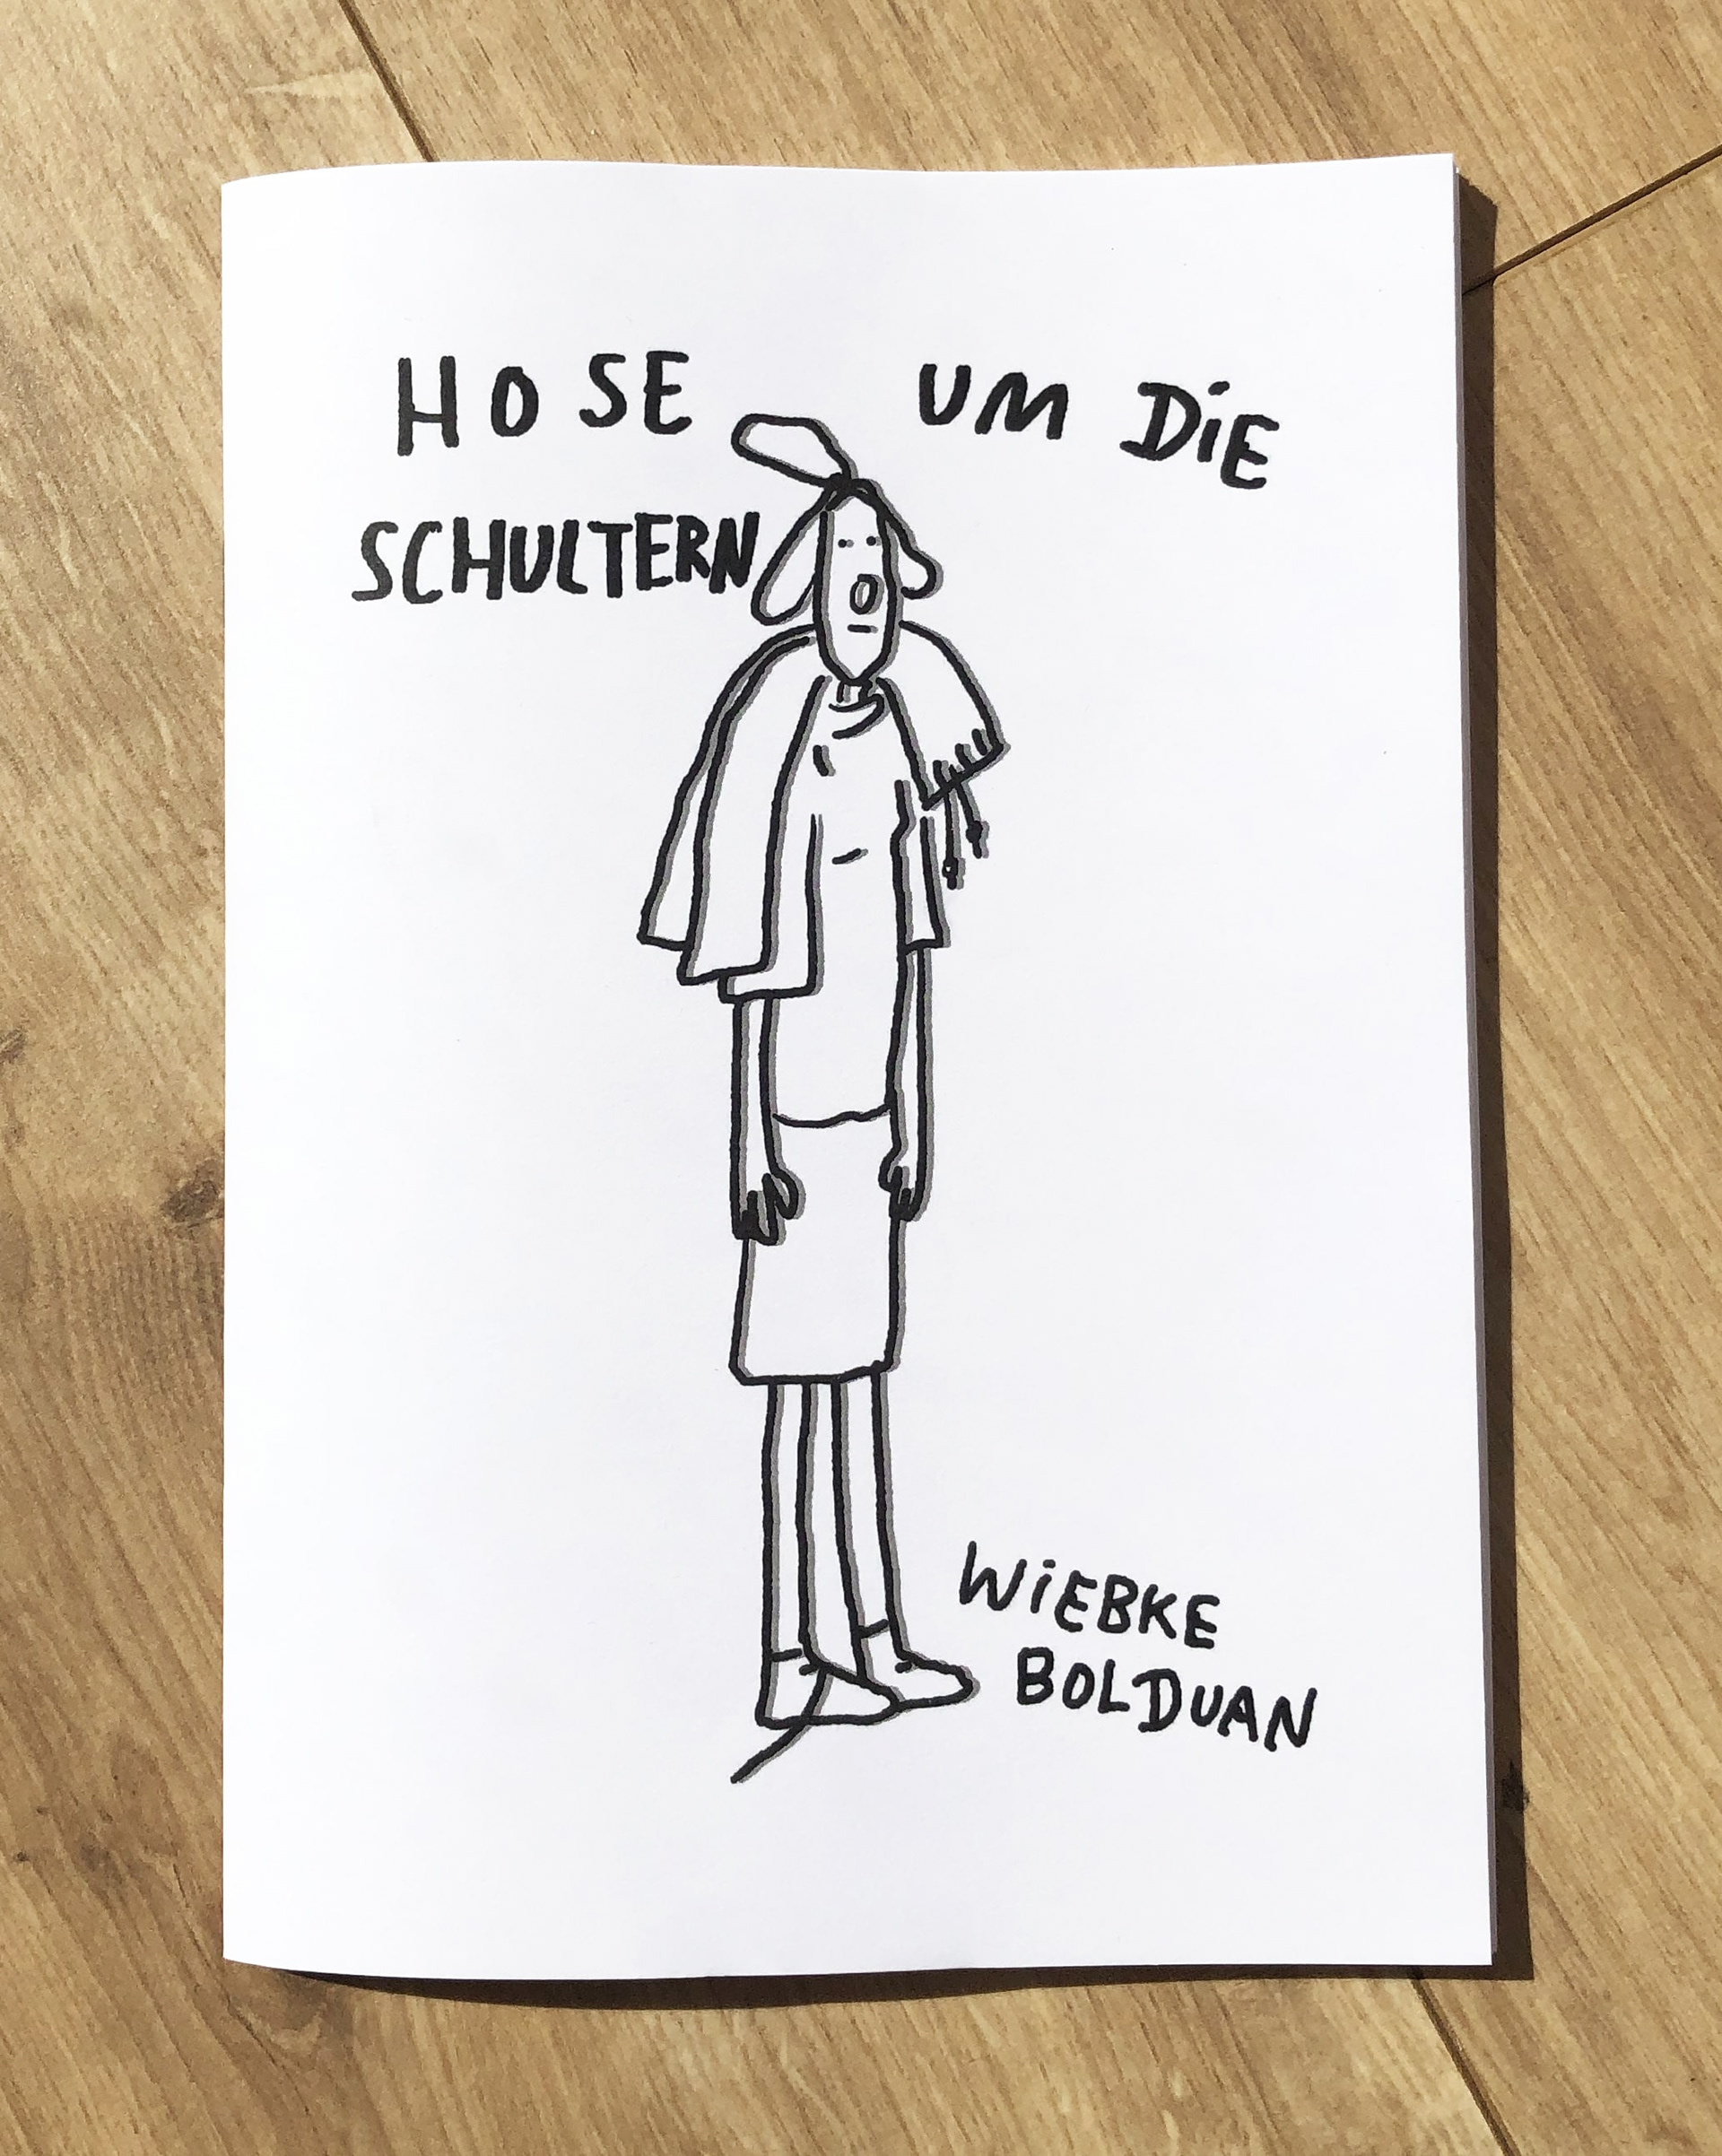 HOSE UM DiE
SCHULTERN
WiEBKE
BOLDUAN